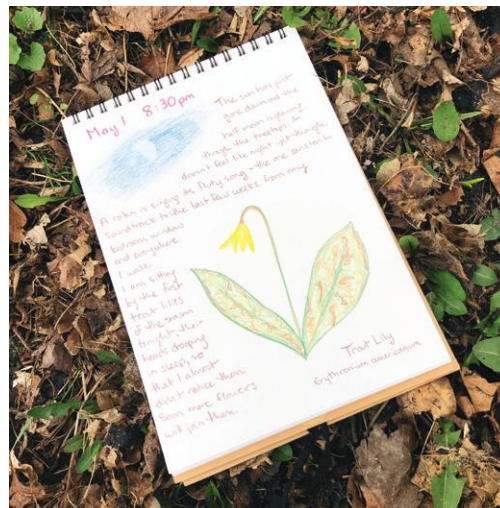 May 1 8:30pm
The sun has just
gone down and the
half moon is glowing
through the treetops. It
doesn't feel like night yet though.
A robin is singing its fluty song - the one constant
soundtrack to the last few weeks from my
bedroom window
and anywhere
I walk.
I am sitting
by the first
trout lilies
of the season
tonight, their
heads drooping
in sleep, so
that I almost
didn't notice them.
Soon more flowers
will join them.
Trout Lily
Erythronium americanum